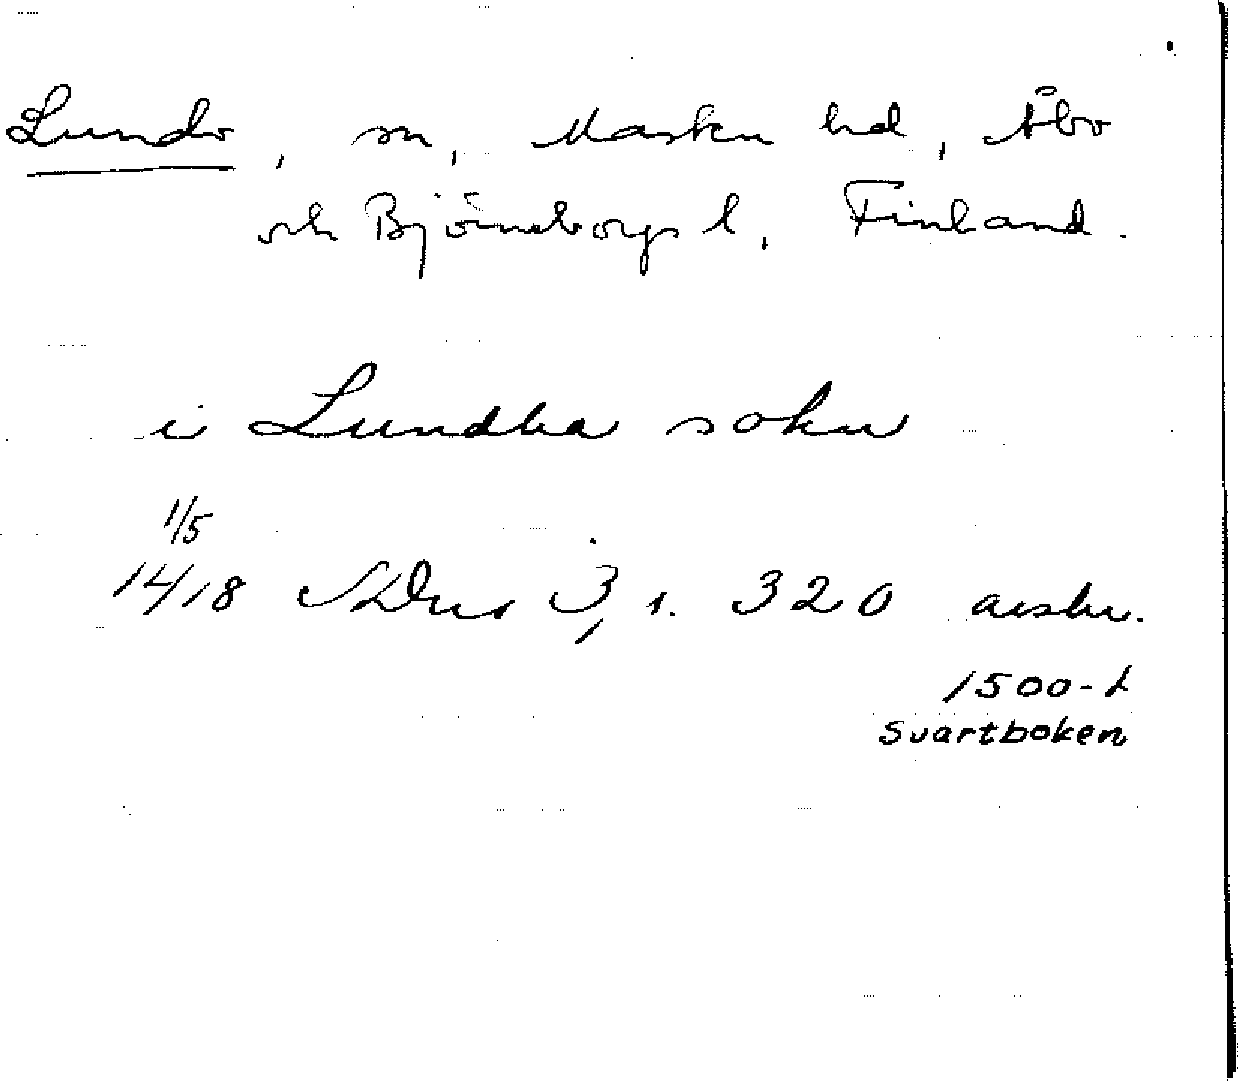 Lundo, sn, Masku hd, Åbo
och Björneborgs l, Finland.
i Lundha sokn
1/5
1418 SDns 3, s. 320 avskr.
1500-t
Svartboken